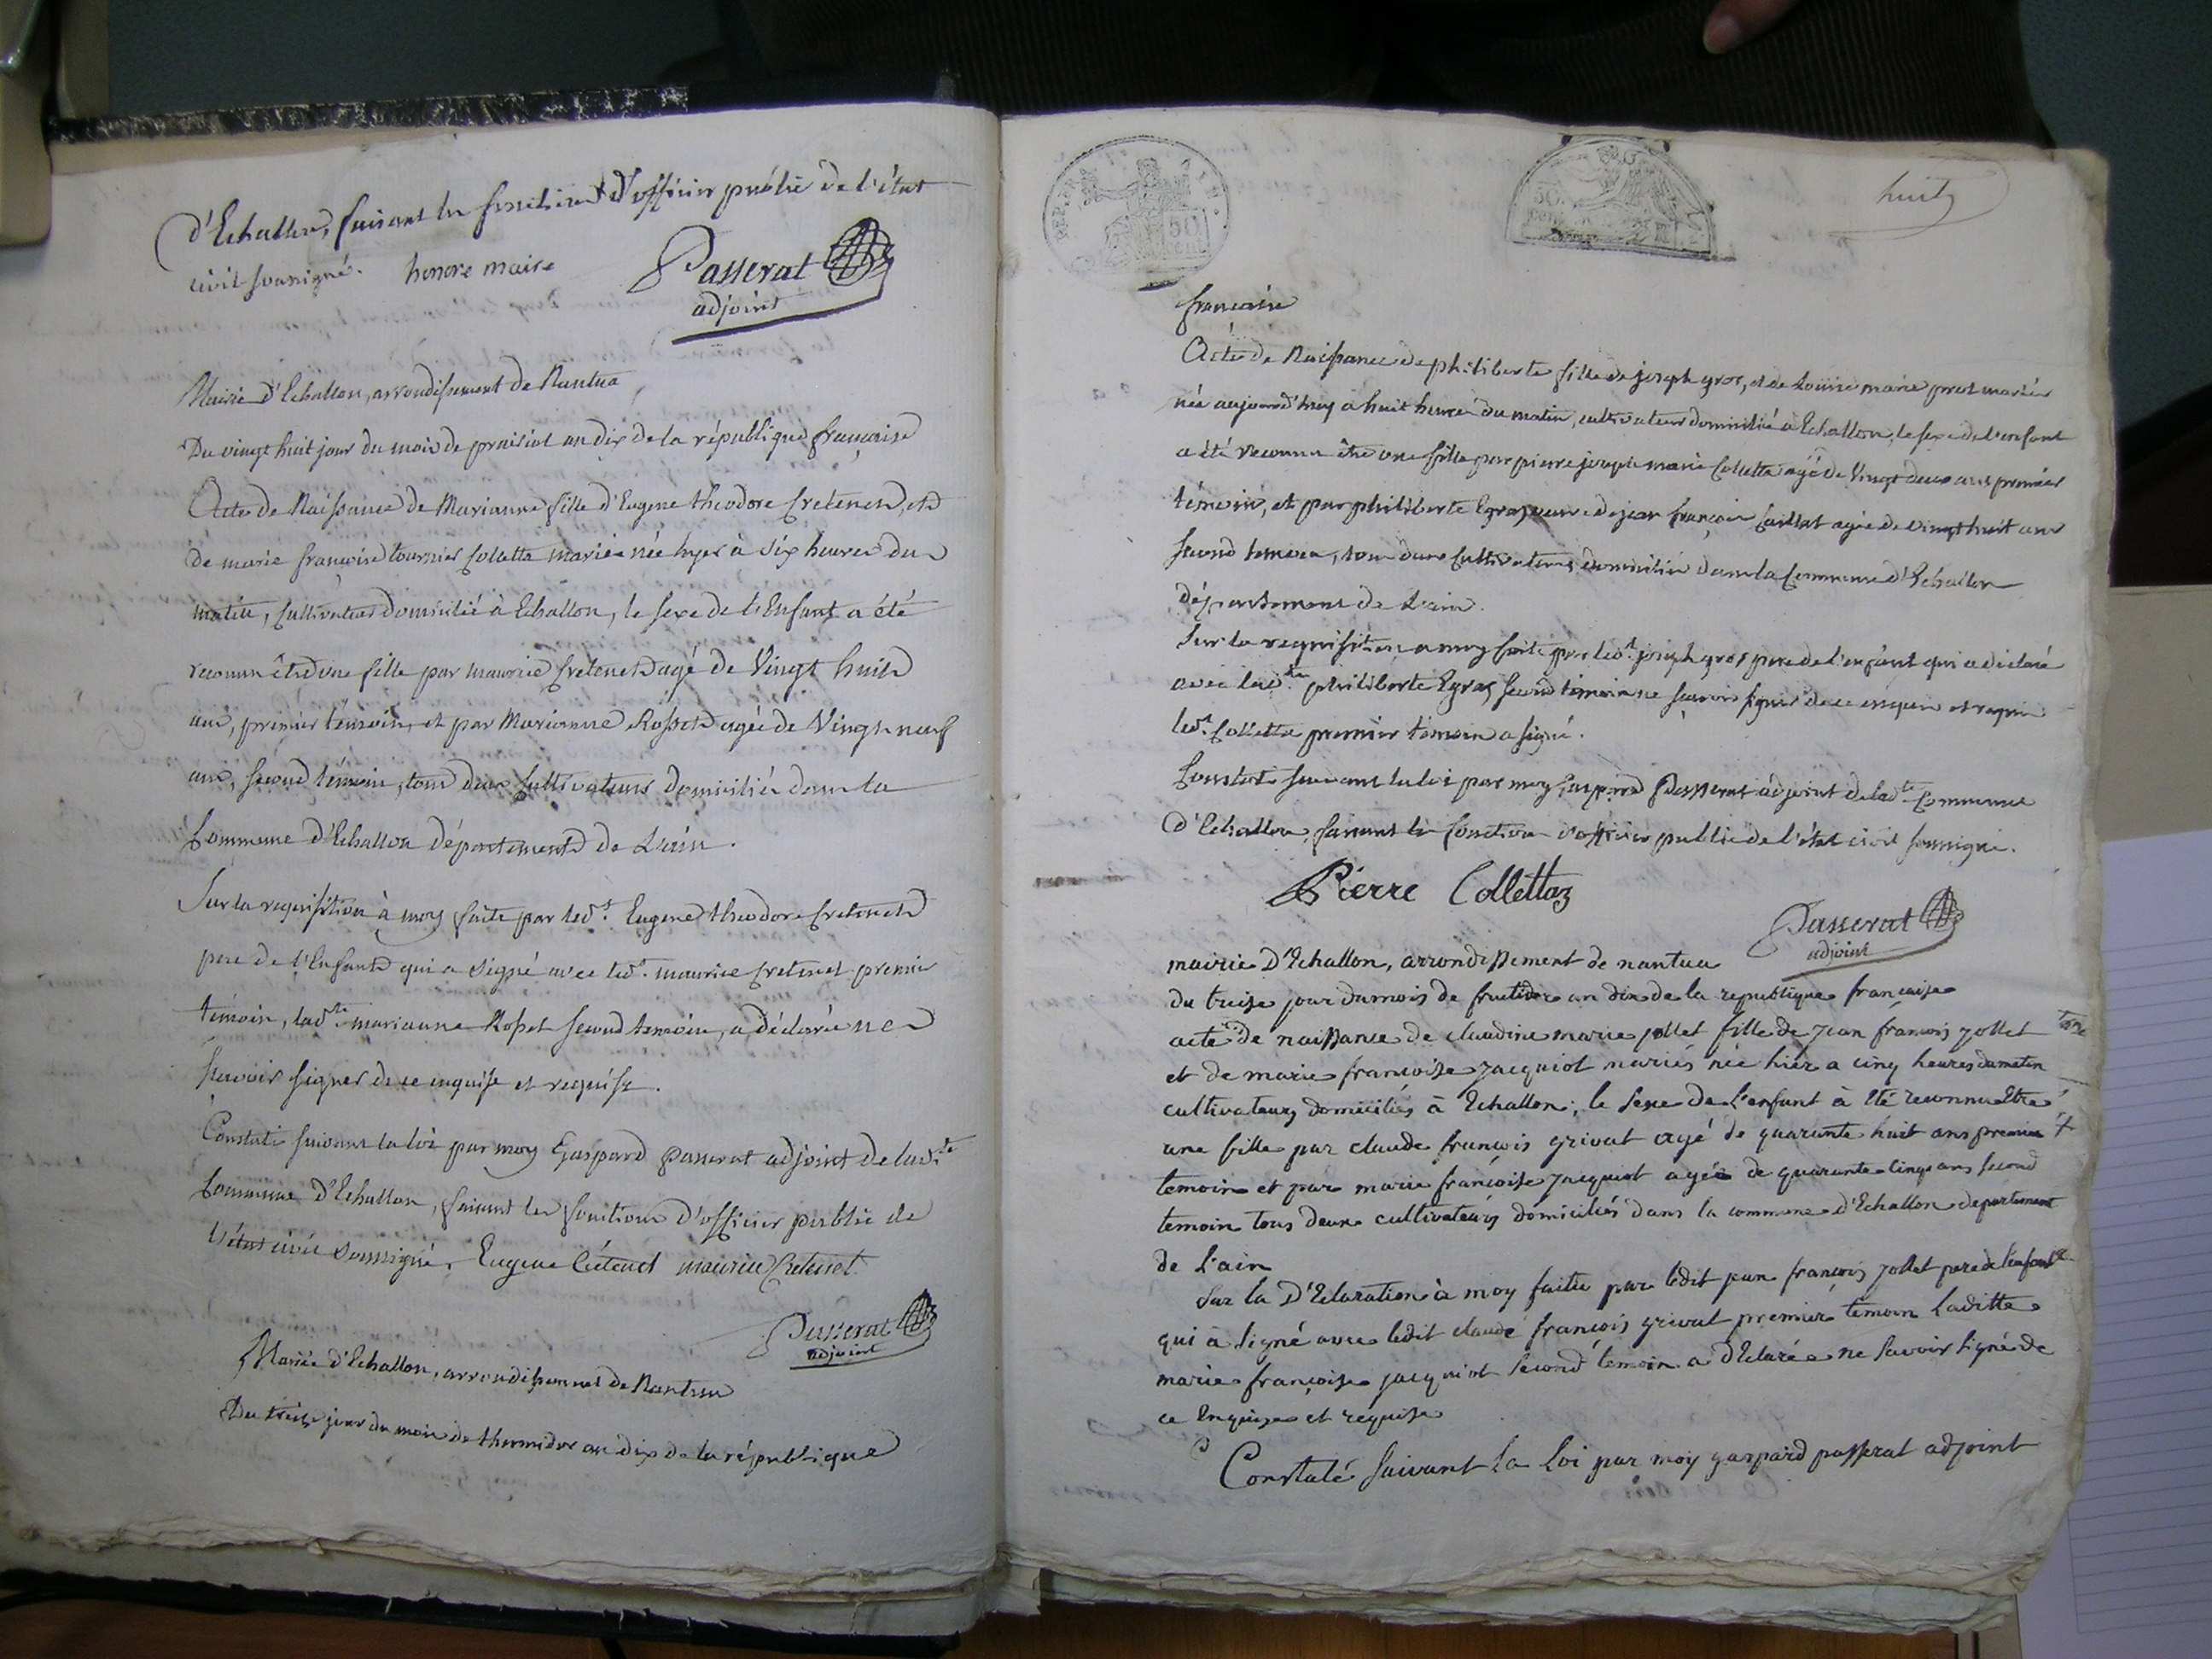 d'Echallon, faisant les fonctions d'officier public de l'état
civil soussigné. honore maire
Passerat
adjoint
Mairie d'Echallon, arrondissement de Nantua
Du vingt huit jour du mois de prairial an dix de la république française
Acte de Naissance de Marianne fille d'Eugene theodore Cretenet, et
de marie françoise tournier Colletta mariés née hyer à six heures du
matin, Cultivateur domicilié à Echallon, le sexe de l'Enfant a été
reconnu être une fille par maurice Cretenet agé de Vingt huit
ans, premier témoin, et par Marianne Rosset agée de Vingt neuf
ans, second témoin, tous deux Cultivateurs domiciliés dans la
Commune d'Echallon département de L'ain.
Sur la requisition à moy faite par led.t Eugene theodore Cretenet
pere de l'Enfant qui a signé avec led.t maurice Cretenet premier
témoin, lad.te marianne Rosset second témoin, a déclarée ne
sçavoir signer de ce enquise et requise.
Constaté suivant la loi par moy Gaspard Passerat adjoint de lad.te
Commune d'Echallon, faisant les fonctions d'officier public de
l'état civil soussigné. Eugene Cretenet maurice Cretenet
Passerat
adjoint
Mairie d'Echallon, arrondissement de Nantua
Du treize jour du mois de thermidor an dix de la république
huit
50
50
française
Acte de Naissance de philiberte fille de joseph gros, et de Louise marie prost mariés
née aujourd'huy à huit heures du matin, cultivateur domicilié à Echallon, le sexe de l'enfant
a été reconnu être une fille par pierre joseph marie Colletta agé de Vingt deux ans premier
témoin, et par philiberte Egraz veuve de jean françois Caillat agée de vingt huit ans
second temoin, tous deux Cultivateurs domiciliés dans la Commune d'Echallon
département de L'ain.
Sur la requisition a moy faite par led.t joseph gros pere de l'enfant qui a déclaré
avec lad.te philiberte Egraz second témoin ne sçavoir signer de ce enquis et requis
led.t Colletta premier témoin a signé.
Constaté suivant la loi par moy Gaspard Passerat adjoint de lad.te Commune
d'Echallon, faisant les fonction d'officier public de l'état civil soussigné.
Pierre Collettaz
Passerat
adjoint
mairie D'Echallon, arrondissement de nantua
du treise jour du mois de fructidor an dix de la republique francaise
acte de naissance de claudine marie jollet fille de jean françois jollet
et de marie francoise jacquiot mariés née hier a cinq heures du matin
cultivateurs domiciliés à Echallon; le sexe de l'enfant à été reconnu être
une fille par claude francois grivat agé de quarante huit ans premier
temoin et par marie françoise jacquiot agée de quarante cinq ans second
temoin tous deux cultivateurs domiciliés dans la commune d'Echallon departement
de l'ain
Sur la D'Eclaration à moy faitte par ledit jean françois jollet pere de l'enfant
qui à signé avec ledit claude françois grivat premier temoin laditte
marie françoise jacquiot second temoin a d'Eclarée ne savoir signé de
ce Enquise et requise
Constaté suivant la loi par moy gaspard passerat adjoint